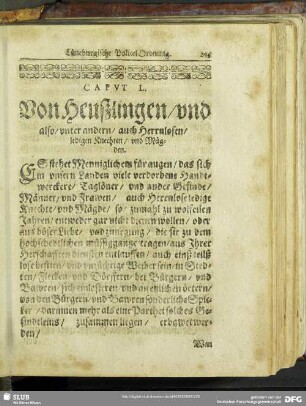 Lüneburgische Policei Ordnung. 204
CAPVT L.
Von Heußlingen/vnd
also/vnter andern/auch Herrnlosen/
ledigen Knechten/vnd Mäg-
den.
ES stehet Menniglichem für augen/das sich
in vnsern Landen viele verdorbene Handt-
wercker/Taglöner/vnd ander Gesinde/
Männer/vnd Frawen/auch Herrnlose ledige
Knechte/vnd Mägde/so zumahl zu wolfeilen
Jahren/entweder gar nicht dienen wollen/oder
aus böser Liebe/vnd zuneigung/die sie zu dem
hochschedtlichen müssiggange tragen/aus Ihrer
Herschafften diensten entlauffen/auch etzliche
lose vnd vnzüchtige Weiber sein/in Sted-
ten/Flecken vnd Dörffern bei Bürgern/vnd
Bawren/sich
von den Bürgern/vnd Bawren sonderliche Spie-
ker/darinnen mehr als eine Parthei solches Ge-
sindleins/zusammen liegen/erbawet wer-
den/
Wan
SLUB
Wir führen Wissen.
gefördert von der
Deutschen Forschungsgemeinschaft
DFG